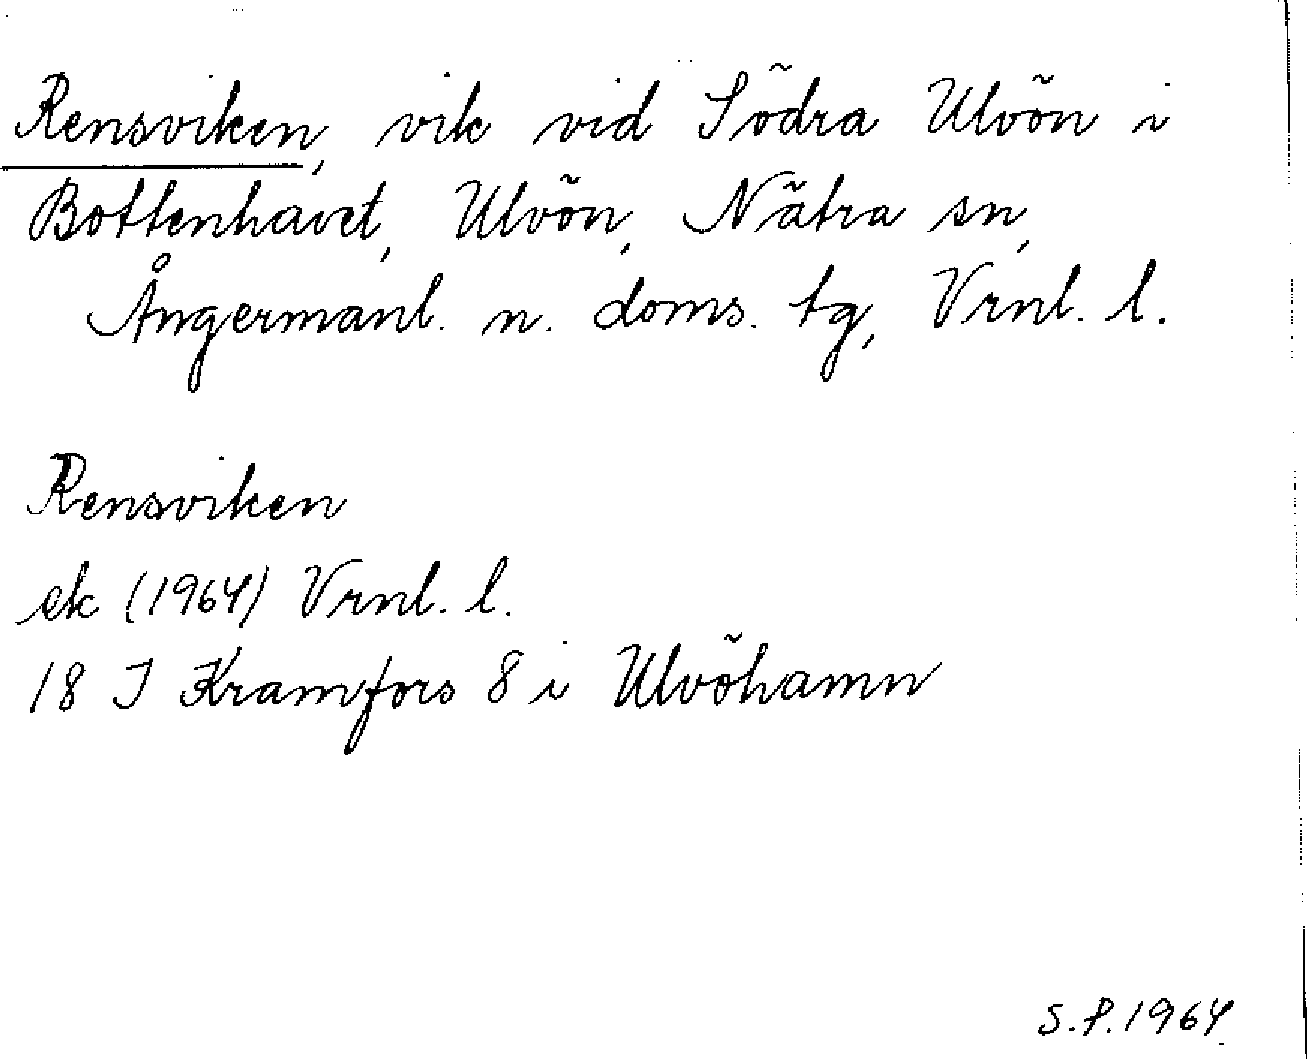 Rensviken, vik vid Södra Ulvön i
Bottenhavet, Ulvön, Nätra sn,
Ångermanl. n. doms. tg, Vrnl. l.
Rensviken
ek (1964) Vrnl. l.
18 I Kramfors 8 i Ulvöhamn
S.P.1964